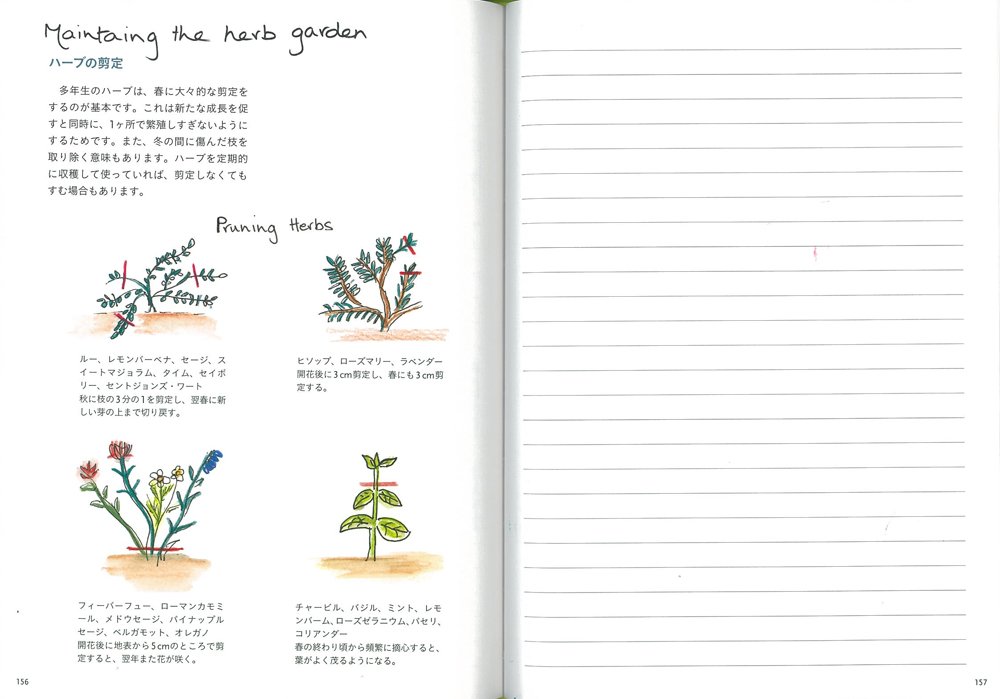 Maintaing the herb garden
ハーブの剪定
多年生のハーブは、春に大々的な剪定を
するのが基本です。これは新たな成長を促
すと同時に、1ヶ所で繁殖しすぎないように
するためです。また、冬の間に傷んだ枝を
取り除く意味もあります。ハーブを定期的
に収穫して使っていれば、剪定しなくても
すむ場合もあります。
Pruning Herbs
ルー、レモンバーベナ、セージ、ス
イートマジョラム、タイム、セイボ
リー、セントジョンズ・ワート
秋に枝の3分の1を剪定し、翌春に新
しい芽の上まで切り戻す。
ヒソップ、ローズマリー、ラベンダー
開花後に3cm剪定し、春にも3cm剪
定する。
フィーバーフュー、ローマンカモミ
ール、メドウセージ、パイナップル
セージ、ベルガモット、オレガノ
開花後に地表から5cmのところで剪
定すると、翌年また花が咲く。
チャービル、バジル、ミント、レモ
ンバーム、ローズゼラニウム、パセリ、
コリアンダー
春の終わり頃から頻繁に摘心すると、
葉がよく茂るようになる。
156
157